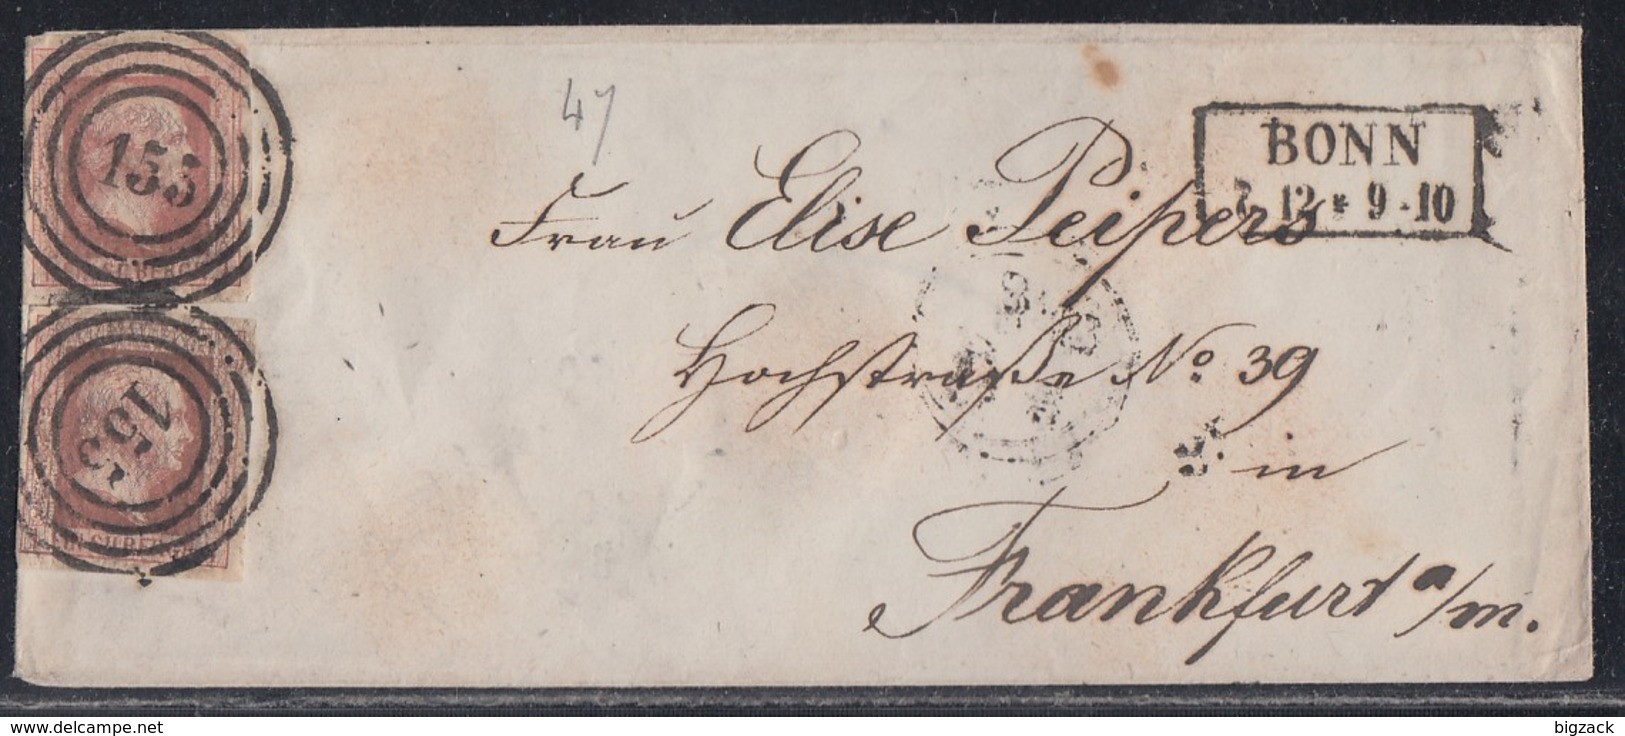 47
BONN
7 12 * 9-10
Frau Elise Peipers
Hochstraße No. 39
in
Frankfurt a/m.
153
153
SILBERGR.
www.delcampe.net
bigzack